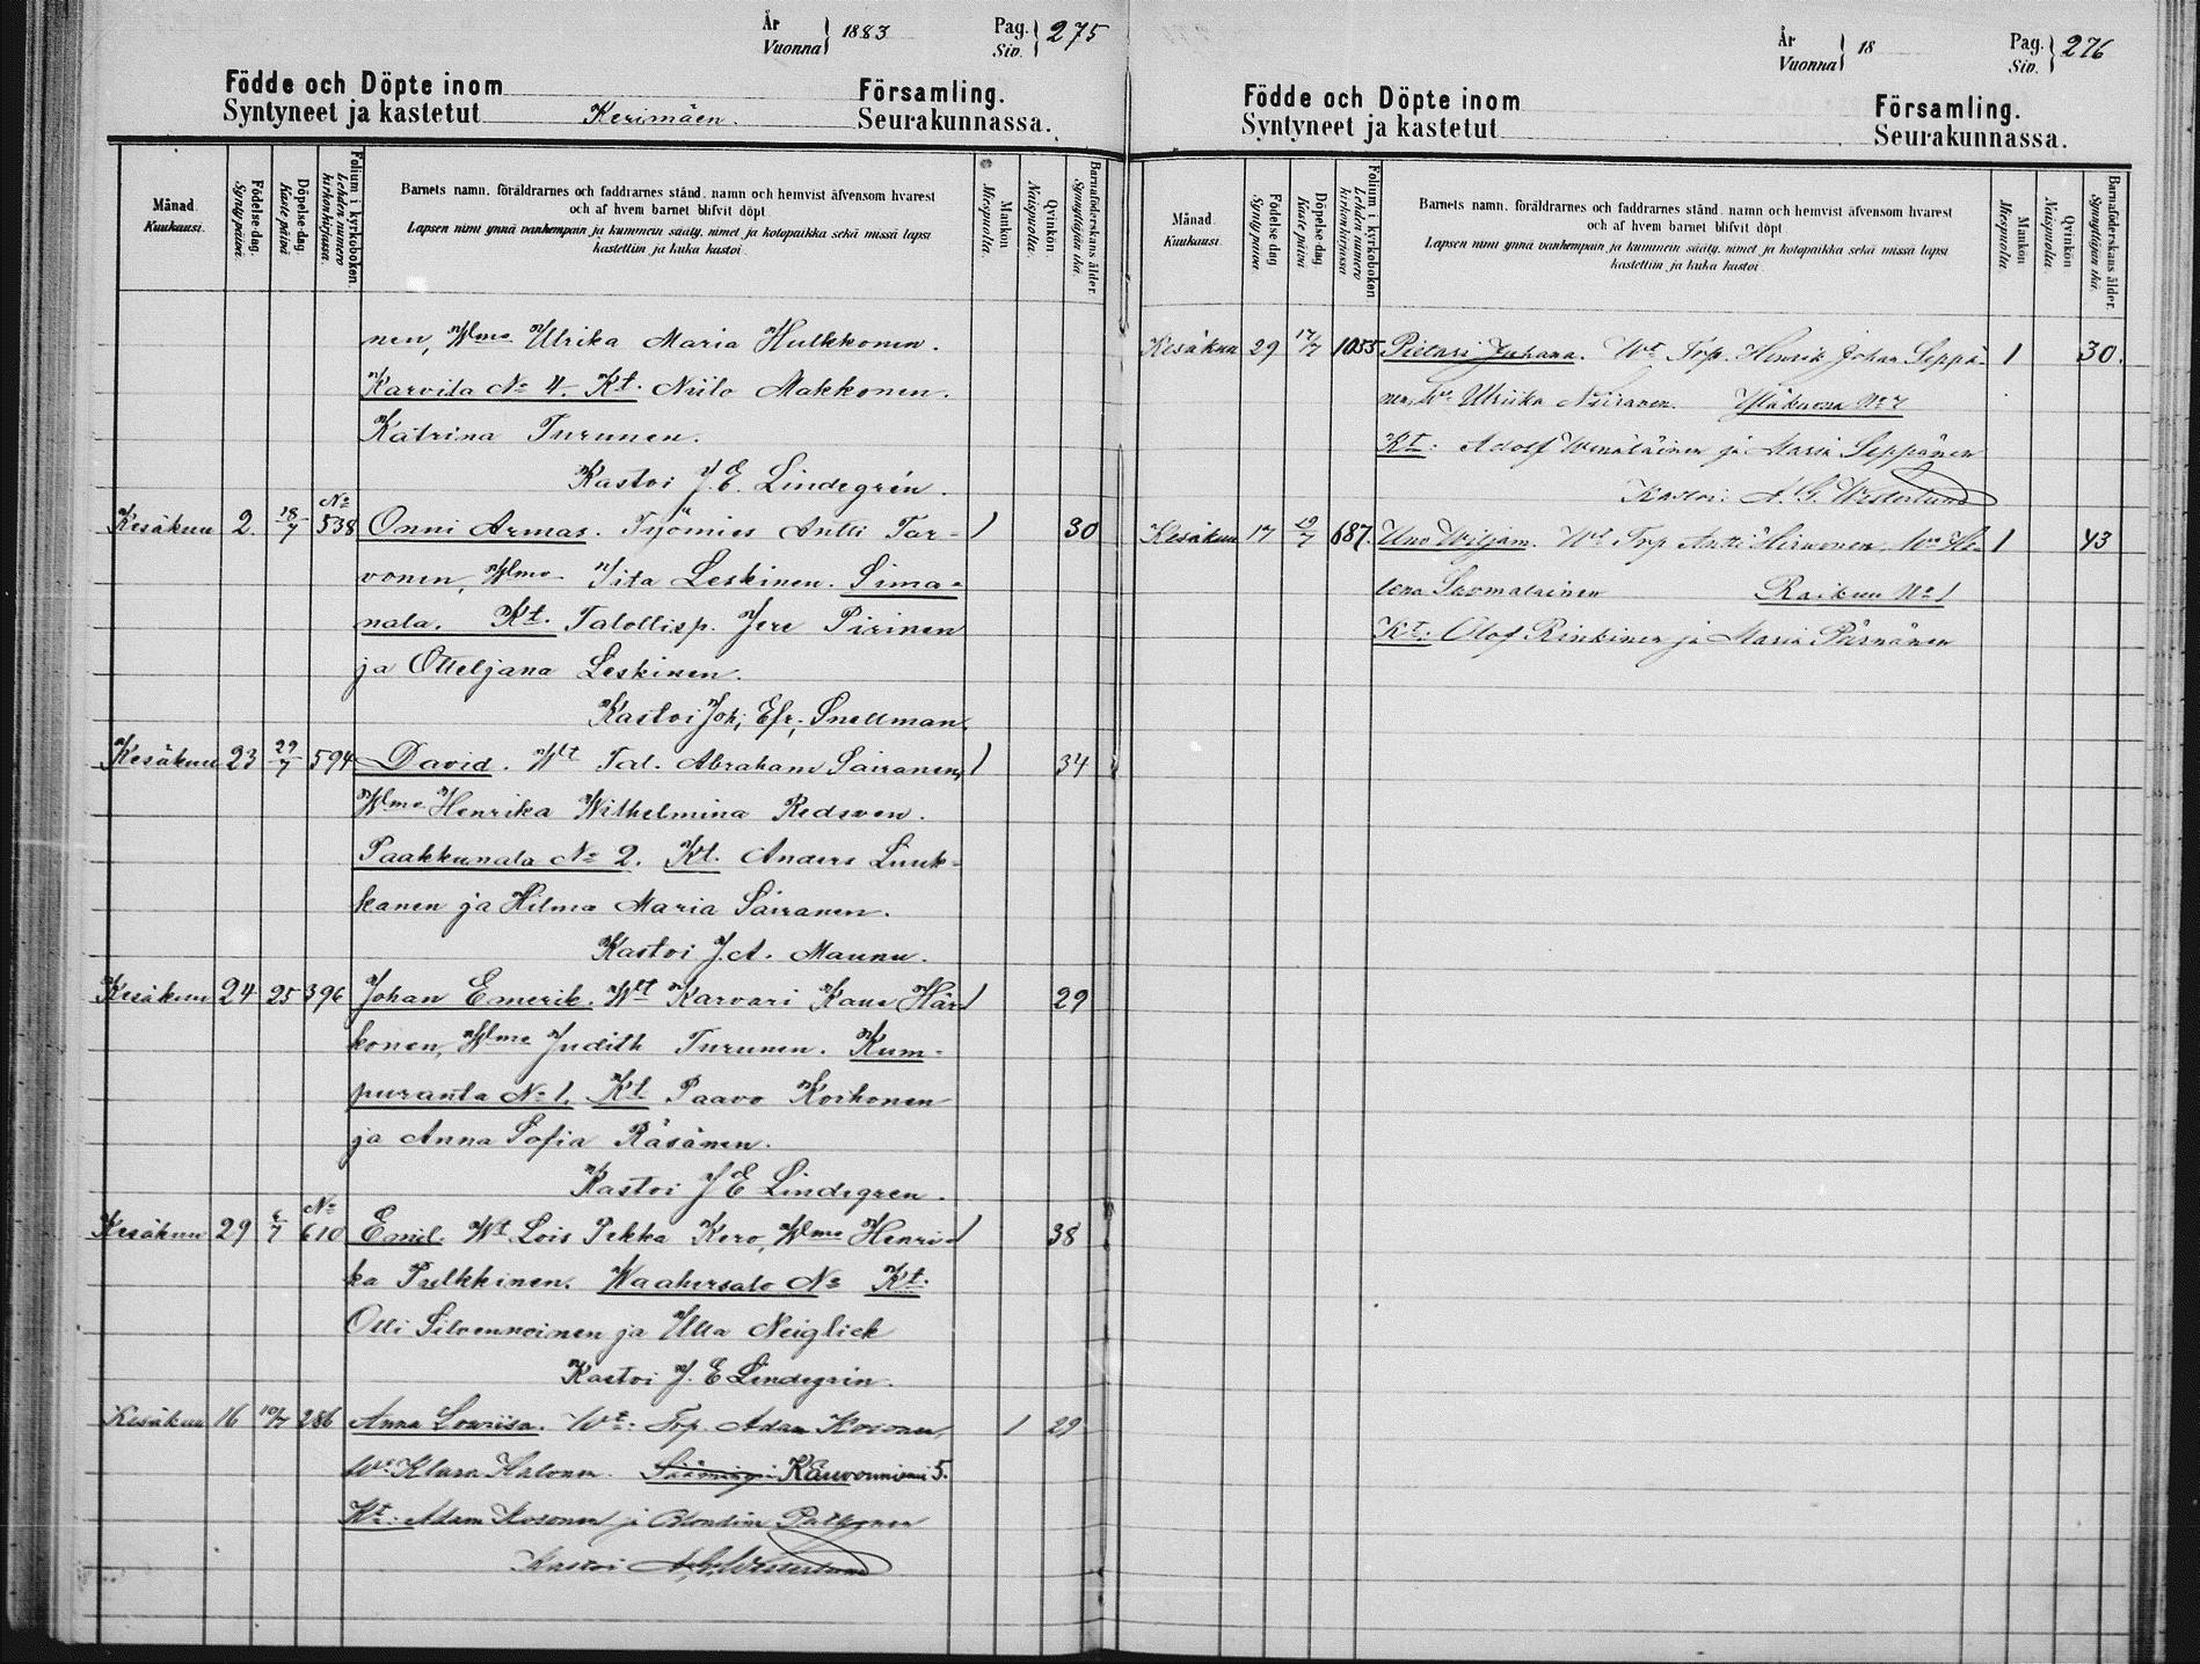 År
Vuonna } 1883
Pag.
Siv. } 275
Födde och Döpte inom Församling.
Syntyneet ja kastetut Kerimäen. Seurakunnassa.
Månad. Kuukausi.
Födelse-dag. Syntypäivä.
Döpelse-dag. Kastepäivä
Folium i kyrkoboken. Lehden numero kirkonkirjassa.
Barnets namn, föräldrarnes och faddrarnes stånd, namn och hemvist äfvensom hvarest
och af hvem barnet blifvit döpt
Lapsen nimi ynnä vanhempain ja kummein sääty, nimet ja kotopaikka sekä missä lapsi
kastettiin ja kuka kastoi
Mankön Miespuolta.
Qvinkön. Naispuolta.
Barnaföderskans ålder. Synnyttäjän ikä.
nen, Wmo Ulrika Maria Hulkkonen.
Karvila No 4. Kt. Niilo Makkonen.
Katrina Turunen.
Kastoi J. E. Lindegrén.
Kesäkuu 2. 18/7 No 538 Onni Armas. Työmies Antti Tar- 1 30
vonen, Wmo Iita Leskinen. Sima-
nala. Kt. Talollisp. Jere Pirinen
ja Otteljana Leskinen.
Kastoi Joh; Efr; Snellman.
Kesäkuu 23 29/7 594 David. Wlt Tal. Abraham Sairanen, 1 34
Wmo Henrika Wilhelmina Redsven.
Paakkunala No 2. Kt. Anders Liuk-
kanen ja Hilma Maria Sairanen.
Kastoi J. A. Maunu.
Kesäkuu 24 25 396 Johan Emerik. Wlt Karvari Kaue Här 1 29
konen, Wmo Judith Turunen. Kum-
puranta No 1. Kt Paavo Korhonen
ja Anna Sofia Räsänen.
Kastoi J E Lindegren.
Kesäkuu 29 6/7 No 610 Emil. Wt Lois Pekka Kero, Wmo Henri- 1 38
ka Pulkkinen. Waahersalo No Kt.
Olli Silvennoinen ja Ulla Neiglick
Kastoi J. E Lindegrén.
Kesäkuu 16 10/7 286 Anna Lowiisa. Wt: Trp. Adam Kosonen, 1 29
Wo Klara Halonen. Säämingi Kauvonniemi 5.
Kt: Adam Kosonen ja Blondina Pelkonen
Kastoi A. G. Westerlund
År
Vuonna } 18
Pag.
Siv. } 276
Födde och Döpte inom Församling.
Syntyneet ja kastetut Seurakunnassa.
Månad. Kuukausi
Födelse dag Syntypäivä
Döpelse-dag. Kaste päivä
Folium i kyrkoboken Lehden numero kirkonkirjassa
Barnets namn, föräldrarnes och faddrarnes stånd, namn och hemvist äfvensom hvarest
och af hvem barnet blifvit döpt
Lapsen nimi ynnä vanhempain ja kummein sääty, nimet ja kotopaikka sekä missä lapsi
kastettiin ja kuka kastoi
Mankön Miespuolta
Qvinkön Naispuolta.
Barnaföderskans ålder. Synnyttäjän ikä.
Kesäkuu 29 17/7 1055 Pietari Juhana. Wt Trp. Henrik Johan Seppä- 1 30.
nen, Wo Ulriika Nuiranen. Yläkuona No 7
Kt: Adolf Wenäläinen ja Maria Seppänen
Kastoi: A. G. Westerlund
Kesäkuu 17 19/7 687. Uno Wiljam. Wt Trp Antti Hirvonen, Wo He- 1 43
lena Suomalainen Raikuu No 1
Kt: Olof Rinkinen ja Maria Päsnänen